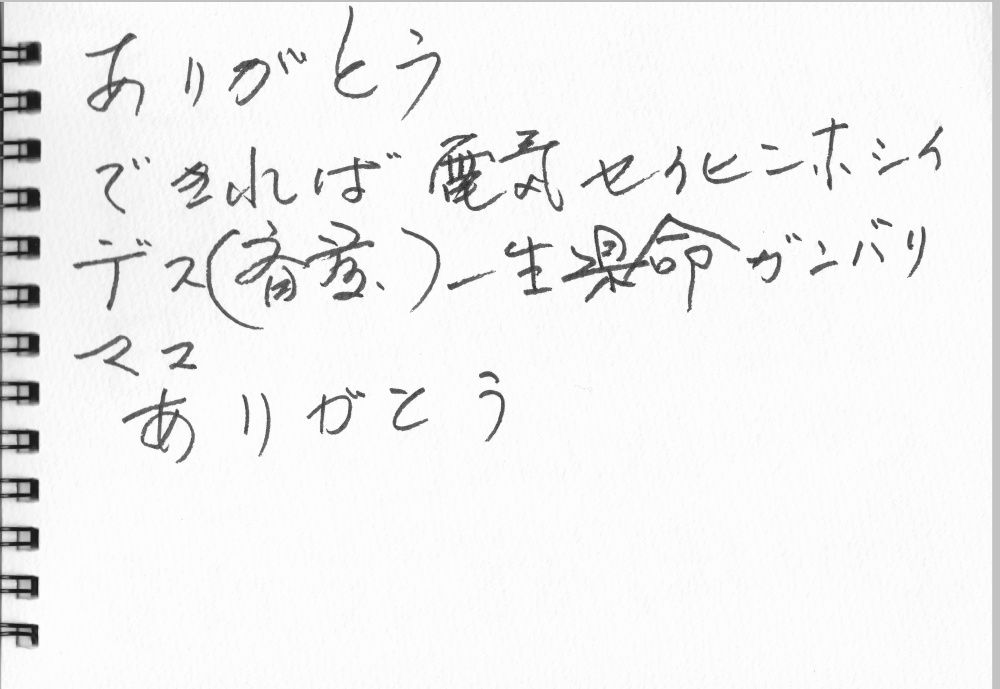 ありがとう
できれば電気セイヒンホシイ
デス( )一生県命ガンバリ
マス
ありがとう